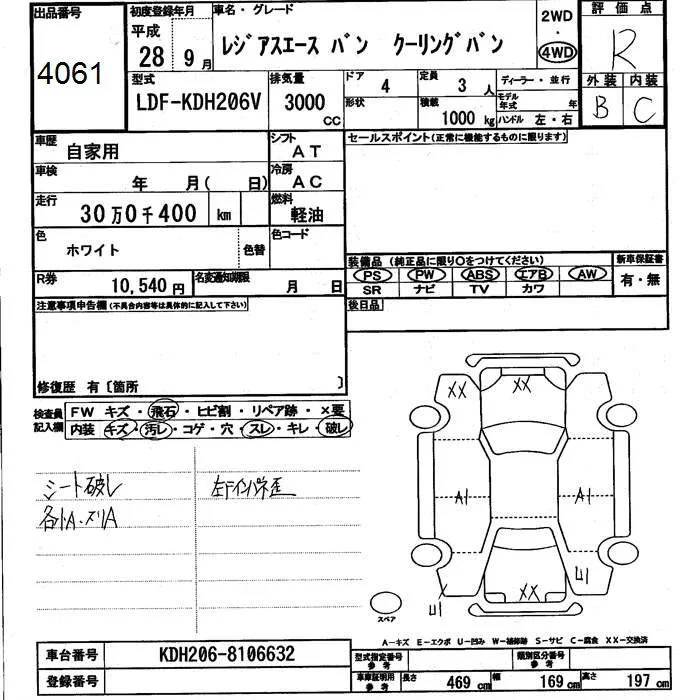 出品番号
4061
初度登録年月
平成
28年 9月
車名・グレード
レジアスエース バン クーリングバン
2WD
・
4WD
評価点
R
型式
LDF-KDH206V
排気量
3000
CC
ドア
4
定員
3人
形状
積載
1000kg
ディーラー・並行
モデル年式 年
ハンドル 左・右
外装 内装
B C
車歴
自家用
シフト
AT
車検
年 月( 日)
冷房
AC
走行
30万0千400 km
燃料
軽油
色
ホワイト
色替
色コード
R券
10,540円
名変通知期限
月 日
セールスポイント(正常に機能するものに限ります)
装備品 (純正品に限り〇をつけてください)
新車保証書
有・無
PS PW ABS エアB AW
SR ナビ TV カワ
後日品
注意事項申告欄(不具合内容等は具体的に記入して下さい)
修復歴 有〔箇所 〕
検査員記入欄
FW キズ・飛石・ヒビ割・リペア跡・×要
内装 キズ・汚レ・コゲ・穴・スレ・キレ・破レ
シート破レ
各小A・スリA
XX
XX
A1
A1
XX
U1
U1
スペア
A－キズ E－エクボ U－凹み W－補修跡 S－サビ C－腐食 XX－交換済
車台番号
KDH206-8106632
登録番号
型式指定番号
参考
類別区分番号
参考
車庫証明用
参考
長さ 469cm
幅 169cm
高さ 197cm